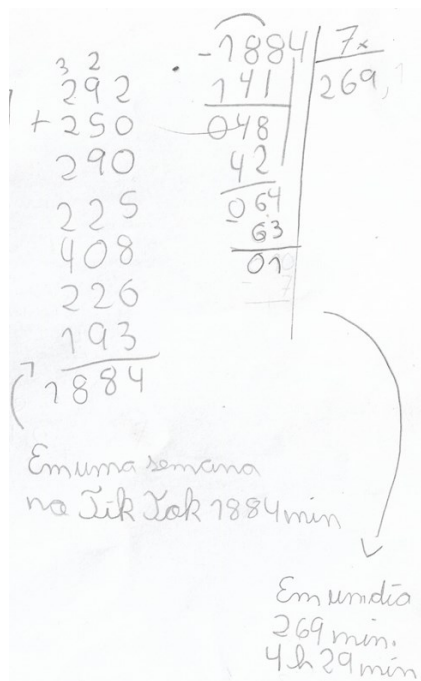 3 2
292
+ 250
290
225
408
226
193
1884
- 1884 | 7x
141 269,
048
42
064
- 63
01
Em uma semana
no Tik Tok 1884 min
Em um dia
269 min.
4h 29 min